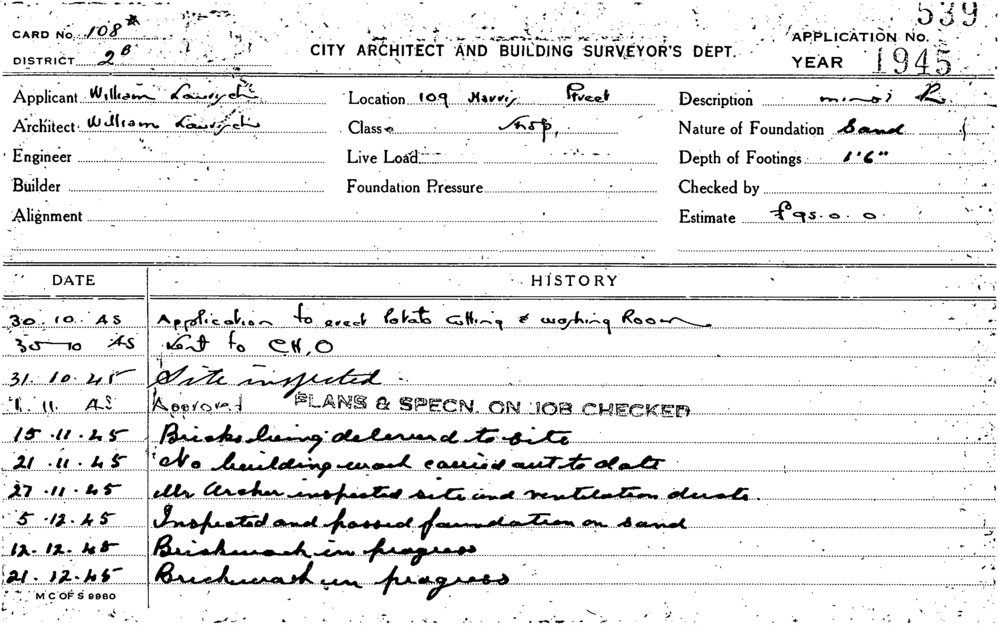 539
CARD No. 108* APPLICATION No.
DISTRICT 2B CITY ARCHITECT AND BUILDING SURVEYOR'S DEPT. YEAR 1945
Applicant William Location 109 Harris Street Description minor
Architect William Class Shop, Nature of Foundation Sand
Engineer Live Load Depth of Footings 1'6"
Builder Foundation Pressure Checked by
Alignment Estimate £95.0.0.
DATE HISTORY
30.10.45 Application to erect Potato Cutting & washing Room
30-10 45 Sent to C.H.O
31.10.45 Site inspected
1.11 45 Approved PLANS & SPECN. ON JOB CHECKED
15.11.45 Bricks being delivered to site
21.11.45 No building work carried out to date
27.11.45 Mr Archer inspected site and ventilation ducts.
5.12.45 Inspected and passed foundation on sand
12.12.45 Brickwork in progress
21.12.45 Brickwork in progress
M C OF S 9980